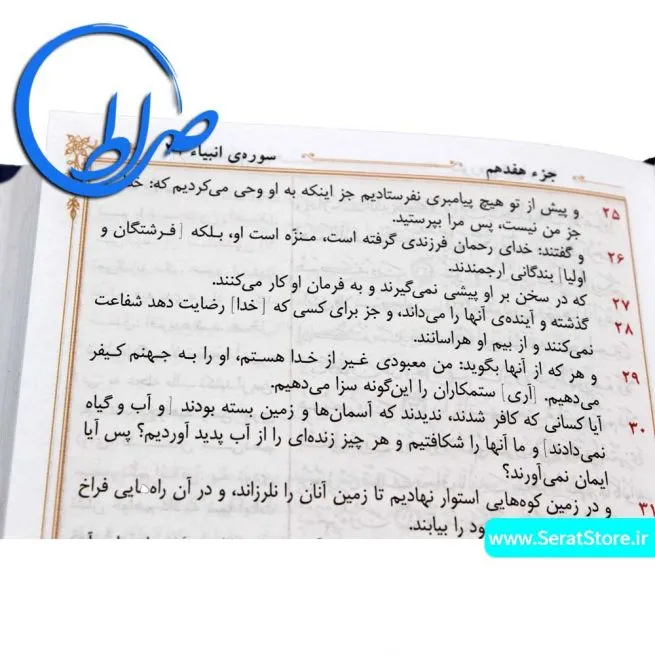 صراط
جزء هفدهم
سوره‌ی انبیاء
۲۵ و پیش از تو هیچ پیامبری نفرستادیم جز اینکه به او وحی می‌کردیم که:
جز من نیست، پس مرا بپرستید.
۲۶ و گفتند: خدای رحمان فرزندی گرفته است، منزّه است او، بلکه [فرشتگان و
اولیا] بندگانی ارجمندند.
۲۷ که در سخن بر او پیشی نمی‌گیرند و به فرمان او کار می‌کنند.
۲۸ گذشته و آینده‌ی آنها را می‌داند، و جز برای کسی که [خدا] رضایت دهد شفاعت
نمی‌کنند و از بیم او هراسانند.
۲۹ و هر که از آنها بگوید: من معبودی غیر از خدا هستم، او را به جهنم کیفر
می‌دهیم. [آری] ستمکاران را این‌گونه سزا می‌دهیم.
۳۰ آیا کسانی که کافر شدند، ندیدند که آسمان‌ها و زمین بسته بودند [و آب و گیاه
نمی‌دادند] و ما آنها را شکافتیم و هر چیز زنده‌ای را از آب پدید آوردیم؟ پس آیا
ایمان نمی‌آورند؟
۳۱ و در زمین کوه‌هایی استوار نهادیم تا زمین آنان را نلرزاند، و در آن راه‌هایی فراخ
را بیابند.
www.SeratStore.ir